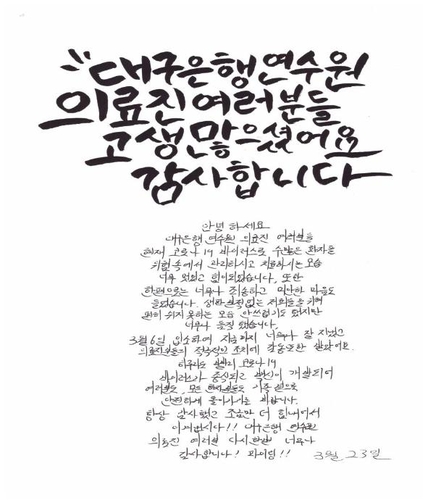 대구은행연수원
의료진여러분들
고생많으셨어요
감사합니다
안녕하세요
대구은행 연수원 의료진 여러분들
현재 코로나 19 바이러스로 수많은 환자들
위험 속에서 관리하시고 치료하시는 모습
너무 멋있고 힘이되었습니다. 또한
한편으로는 너무나 죄송하고 미안한 마음도
들었습니다. 생활
편히 쉬지 못하는 모습 안쓰럽기도 했지만
너무나 듬직 했습니다.
3월 6일 입소하여 지금까지 너무나 잘 지냈고
의료진분들의 적극적인 조치에 감동또한 받았어요.
하루라도 빨리 코로나 19
바이러스가 종식되고 백신이 개발되어
여러분들, 모든 환자분들도 가족 곁으로
안전하게 돌아가시길 바랍니다.
항상 감사했고 조금만 더 힘내어서
이겨냅시다!! 대구은행 연수원
의료진 여러분 다시한번 너무나
감사합니다! 화이팅!! 3월 23일